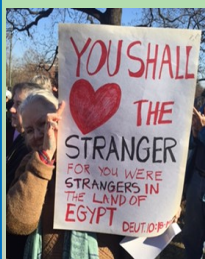 YOU SHALL
THE
STRANGER
FOR YOU WERE
STRANGERS IN
THE LAND OF
EGYPT